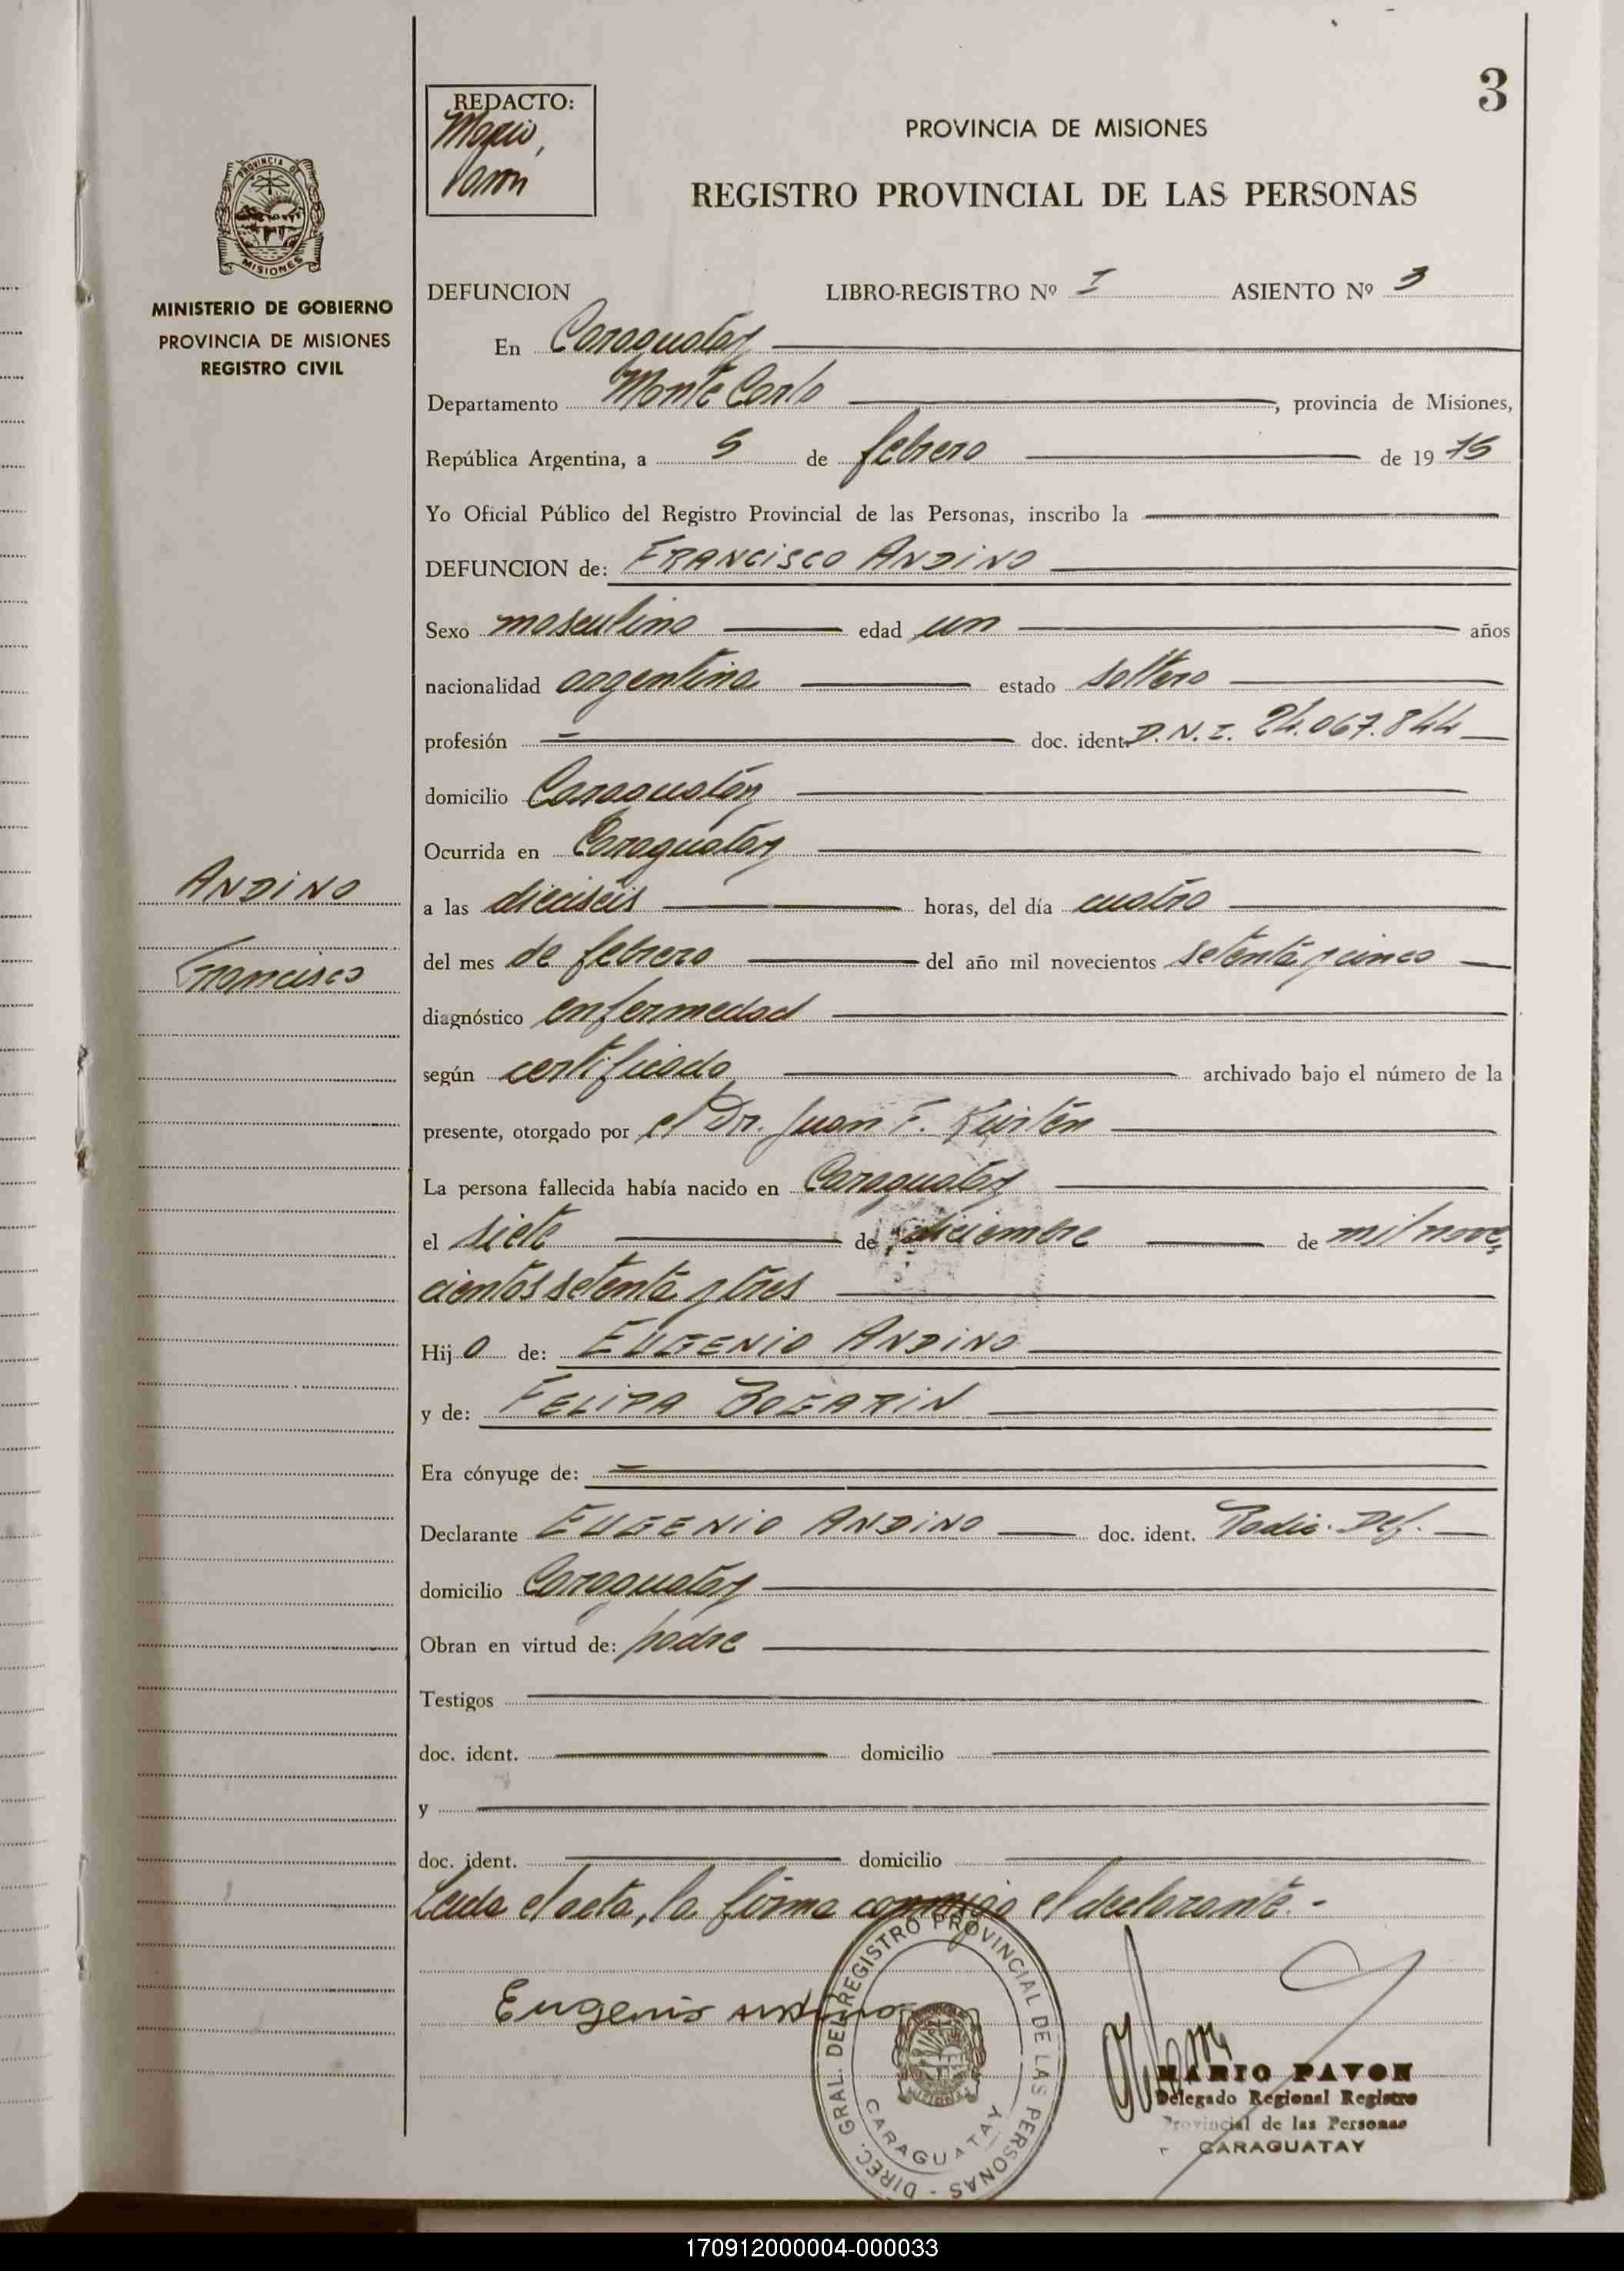 3
REDACTO:
Mario
Pavon
PROVINCIA DE MISIONES
REGISTRO PROVINCIAL DE LAS PERSONAS
PROVINCIA DE
MISIONES
MINISTERIO DE GOBIERNO
PROVINCIA DE MISIONES
REGISTRO CIVIL
DEFUNCION LIBRO-REGISTRO Nº I ASIENTO Nº 3
En Caraguatay
Departamento Monte Carlo, provincia de Misiones,
República Argentina, a 5 de febrero de 19 75
Yo Oficial Público del Registro Provincial de las Personas, inscribo la
DEFUNCION de: FRANCISCO ANDINO
Sexo masculino edad un años
nacionalidad argentina estado soltero
profesión — doc. ident. D.N.I. 24.067.844
domicilio Caraguatay
Ocurrida en Caraguatay
ANDINO
a las dieciséis horas, del día cuatro
Francisco
del mes de febrero del año mil novecientos setenta y cinco
diagnóstico enfermedad
según certificado archivado bajo el número de la
presente, otorgado por el Dr. Juan F.
La persona fallecida había nacido en Caraguatay
el siete de diciembre de mil nove-
cientos setenta y tres
Hijo de: EUGENIO ANDINO
y de: FELIPA BOGARIN
Era cónyuge de: —
Declarante EUGENIO ANDINO doc. ident.
domicilio Caraguatay
Obran en virtud de: padre
Testigos
doc. ident. domicilio
y
doc. ident. domicilio
Leida el acta, la firma conmigo el declarante.-
Eugenio andino
DIREC. GRAL. DEL REGISTRO PROVINCIAL DE LAS PERSONAS -
CARAGUATAY
MARIO PAVON
Delegado Regional Registro
Provincial de las Personas
CARAGUATAY
170912000004-000033